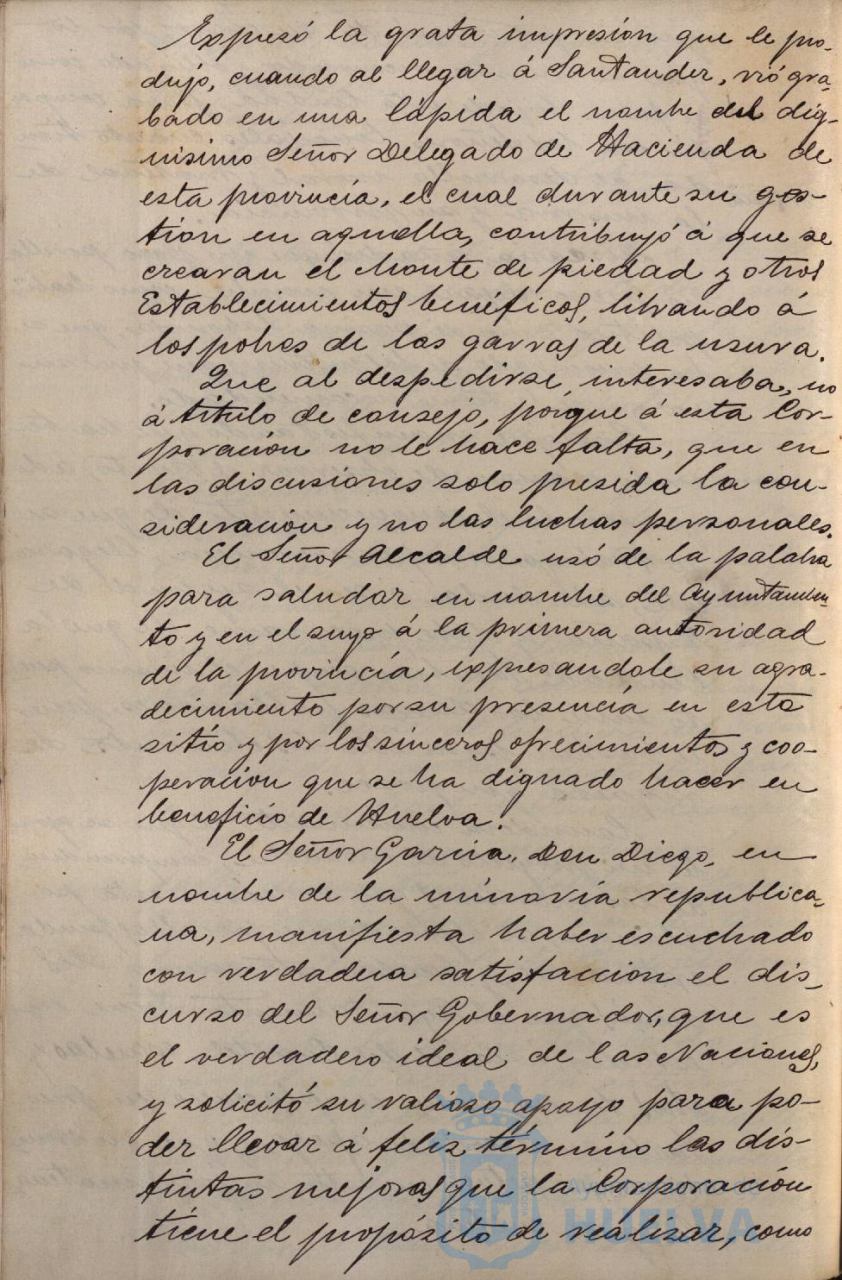 Expuso la grata impresión que le pro-
dujo, cuando al llegar á Santander, vió gra-
bado en una lápida el nombre del dig-
nisimo Señor Delegado de Hacienda de
esta provincia, el cual durante su ges-
tion en aquella, contribuyó á que se
crearan el Monte de piedad y otros
Establecimientos benéficos, librando á
los pobres de las garras de la usura.
Que al despedirse, interesaba, no
á titulo de consejo, porque á esta Cor-
poración no le hace falta, que en
las discusiones solo presida la con-
sideración y no las luchas personales.
El Señor Alcalde usó de la palabra
para saludar en nombre del Ayuntamien-
to y en el suyo á la primera autoridad
de la provincia, expresandole su agra-
decimiento por su presencia en este
sitio y por los sinceros ofrecimientos y coo-
peracion que se ha dignado hacer en
beneficio de Huelva.
El Señor Garcia, Don Diego, en
nombre de la minoría republica-
na, manifiesta haber escuchado
con verdadera satisfaccion el dis-
curso del Señor Gobernador, que es
el verdadero ideal de las Naciones,
y solicitó su valioso apoyo para po-
der llevar á feliz término las dis-
tintas mejoras que la Corporación
tiene el propósito de realizar, como
HUELVA